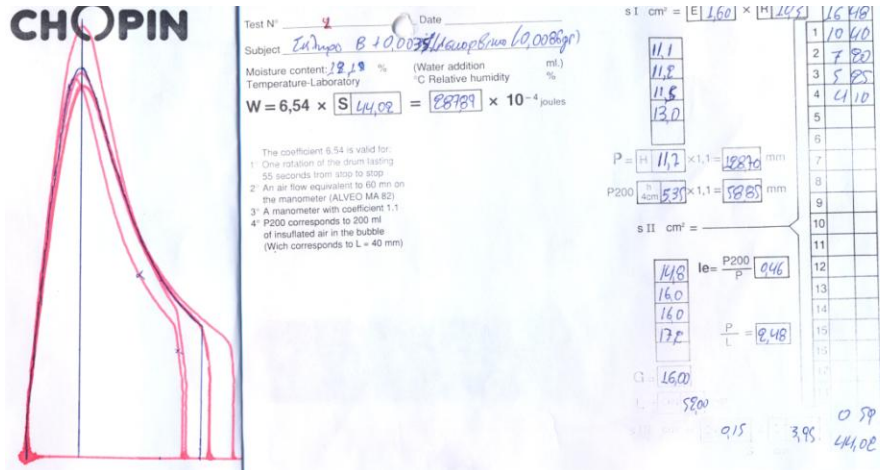 CHOPIN
Test N° 4 Date
Subject Σκληρο Β +0,0035% (0,0086gr)
Moisture content: 12,18 % (Water addition ml.)
Temperature-Laboratory °C Relative humidity %
W = 6,54 × S 44,02 = 28789 × 10⁻⁴ joules
The coefficient 6.54 is valid for:
1° One rotation of the drum lasting
55 seconds from stop to stop
2° An air flow equivalent to 60 mn on
the manometer (ALVEO MA 82)
3° A manometer with coefficient 1.1
4° P200 corresponds to 200 ml
of insuflated air in the bubble
(Wich corresponds to L = 40 mm)
s I cm² = E 1,60 × H
11,1
11,2
11,5
13,0
P = H 11,7 ×1,1 = 12870 mm
P200 h 4cm 5,35 ×1,1 = 5885 mm
s II cm² =
14,8
16,0
16,0
17,2
Ie= P200 / P 0,46
P / L = 2,48
G = 16,00
52,00
0,15 3,95
16 48
1 10 40
2 7 20
3 5 25
4 4 10
5
6
7
8
9
10
11
12
13
14
15
16
0 59
44,02